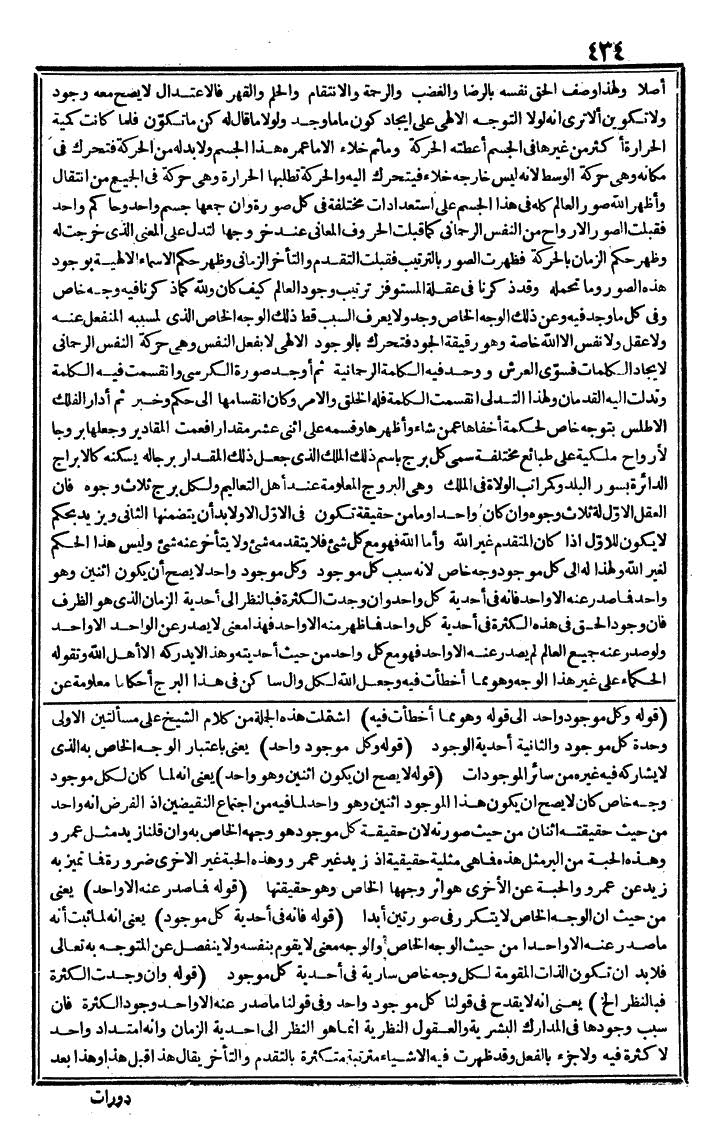 ٤٣٤
أصلا ولهذا وصف الحق نفسه بالرضا والغضب والرحمة والانتقام والحلم والقهر فالاعتدال لا يصح معه وجود
ولا تكوين ألا ترى انه لولا التوجه الالهى على ايجاد كون ما ما وجد ولولا ما قال له كن ما تكوّن فلما كانت كمية
الحرارة أكثر من غيرها فى الجسم أعطته الحركة وما ثم خلاء الا ما عمره هذا الجسم ولا بد له من الحركة فتحرك فى
مكانه وهى حركة الوسط لانه ليس خارجه خلاء فيتحرك اليه والحركة تطلبها الحرارة وهى حركة فى الجميع من انتقال
وأظهر الله صور العالم كله فى هذا الجسم على استعدادات مختلفة فى كل صورة وان جمعها جسم واحد وحاكم واحد
فقبلت الصور الارواح من النفس الرحمانى كما قبلت الحروف المعانى عند خروجها لتدل على المعنى الذى خرجت له
وظهر حكم الزمان بالحركة فظهرت الصور بالترتيب فقبلت التقدم والتأخر الزمانى وظهر حكم الاسماء الالهية بوجود
هذه الصور وما تحمله وقد ذكرنا فى عقلة المستوفز ترتيب وجود العالم كيف كان ولله كما ذكرنا فيه وجه خاص
وفى كل ما وجد فيه وعن ذلك الوجه الخاص وجد ولا يعرف السبب قط ذلك الوجه الخاص الذى لمسببه المنفعل عنه
ولا عقل ولا نفس الا الله خاصة وهو رقيقة الجود فتحرك بالوجود الالهى لا بفعل النفس وهى حركة النفس الرحمانى
لايجاد الكلمات فسوّى العرش ووحد فيه الكلمة الرحمانية ثم أوجد صورة الكرسى وانقسمت فيه الكلمة
وتدلت اليه القدمان ولهذا التدلى انقسمت الكلمة فله الخلق والامر وكان انقسامها الى حكم وخبر ثم أدار الفلك
الاطلس بتوجه خاص لحكمة أخفاها عمن شاء وأظهرها وقسمه على اثنى عشر مقدارا فعمت المقادير وجعلها بروجا
لأرواح ملكية على طبائع مختلفة سمى كل برج باسم ذلك الملك الذى جعل ذلك المقدار برجا له يسكنه كالابراج
الدائرة بسور البلد وكراتب الولاة فى الملك وهى البروج المعلومة عند أهل التعاليم ولكل برج ثلاث وجوه فان
العقل الاوّل له ثلاث وجوه وان كان واحدا وما من حقيقة تكون فى الاوّل الا ولا بد أن يتضمنها الثانى ويزيد بحكم
لا يكون للاوّل اذا كان المتقدم غير الله وأما الله فهو مع كل شئ فلا يتقدمه شئ ولا يتأخر عنه شئ وليس هذا الحكم
لغير الله ولهذا له الى كل موجود وجه خاص لانه سبب كل موجود وكل موجود واحد لا يصح أن يكون اثنين وهو
واحد فما صدر عنه الا واحد فانه فى أحدية كل واحد وان وجدت الكثرة فبالنظر الى أحدية الزمان الذى هو الظرف
فان وجود الحق فى هذه الكثرة فى أحدية كل واحد فما ظهر منه الا واحد فهذا معنى لا يصدر عن الواحد الا واحد
ولو صدر عنه جميع العالم لم يصدر عنه الا واحد فهو مع كل واحد من حيث أحديته وهذا لا يدركه الا أهل الله وتقوله
الحكماء على غير هذا الوجه وهو مما أخطأت فيه وجعل الله لكل وال ساكن فى هذا البرج أحكاما معلومة عن
(قوله وكل موجود واحد الى قوله وهو مما أخطأت فيه) اشتملت هذه الجملة من كلام الشيخ على مسألتين الاولى
وحدة كل موجود والثانية أحدية الوجود (قوله وكل موجود واحد) يعنى باعتبار الوجه الخاص به الذى
لا يشاركه فيه غيره من سائر الموجودات (قوله لا يصح ان يكون اثنين وهو واحد) يعنى انه لما كان لكل موجود
وجه خاص كان لا يصح ان يكون هذا الموجود اثنين وهو واحد لما فيه من اجتماع النقيضين اذ الفرض انه واحد
من حيث حقيقته اثنان من حيث صورته لان حقيقة كل موجود هو وجهه الخاص به وان قلنا زيد مثل عمرو
وهذه الحبة من البر مثل هذه فما هى مثلية حقيقية اذ زيد غير عمرو وهذه الحبة غير الاخرى ضرورة فما تميز به
زيد عن عمرو والحبة عن الأخرى هو اثر وجهها الخاص وهو حقيقتها (قوله فما صدر عنه الا واحد) يعنى
من حيث ان الوجه الخاص لا يتكرر فى صورتين أبدا (قوله فانه فى أحدية كل موجود) يعنى انه لما ثبت أنه
ما صدر عنه الا واحدا من حيث الوجه الخاص والوجه معنى لا يقوم بنفسه ولا ينفصل عن المتوجه به تعالى
فلا بد ان تكون الذات المقومة لكل وجه خاص سارية فى أحدية كل موجود (قوله وان وجدت الكثرة
فبالنظر الخ) يعنى انه لا يقدح فى قولنا كل موجود واحد وفى قولنا ما صدر عنه الا واحد وجود الكثرة فان
سبب وجودها فى المدارك البشرية والعقول النظرية انما هو النظر الى احدية الزمان وانه امتداد واحد
لا كثرة فيه ولا جزء بالفعل وقد ظهرت فيه الاشياء مترتبة متكثرة بالتقدم والتأخر يقال هذا قبل هذا وهذا بعد
دورات